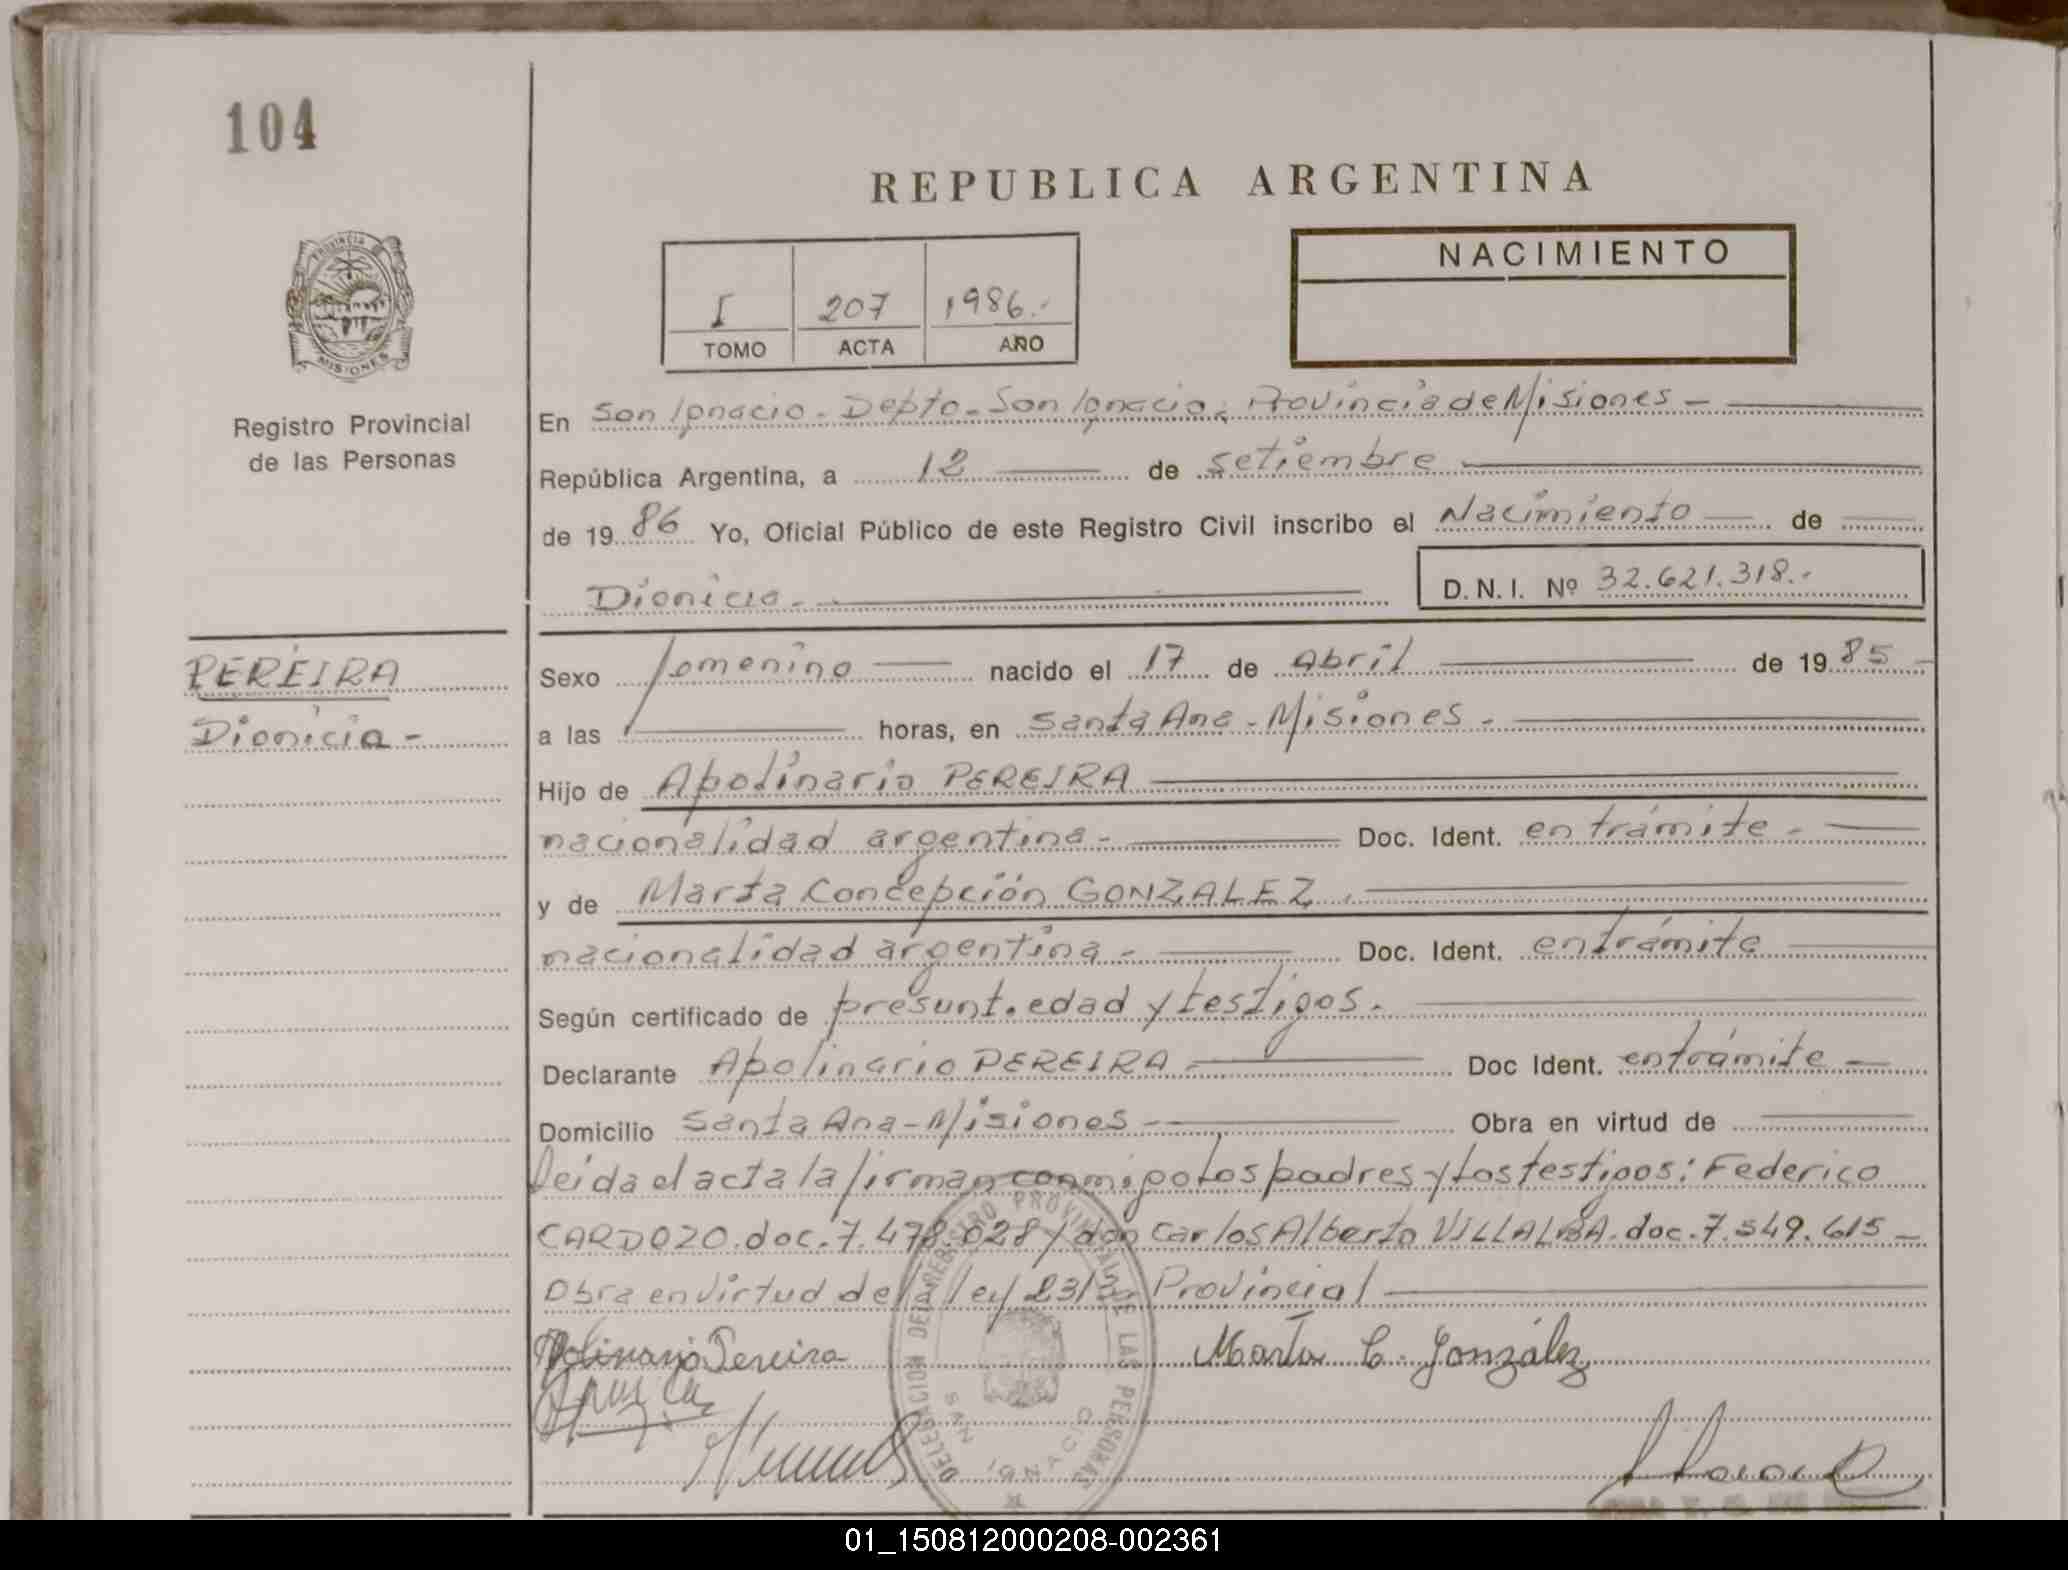 104
REPUBLICA ARGENTINA
NACIMIENTO
I 207 1986.-
TOMO ACTA AÑO
PROVINCIA
MISIONES
Registro Provincial
de las Personas
En San Ignacio - Depto. San Ignacio, Provincia de Misiones -
República Argentina, a 12 de setiembre
de 19 86 Yo, Oficial Público de este Registro Civil inscribo el Nacimiento de
Dionicia - D.N.I. Nº 32.621.318.-
PEREIRA
Dionicia -
Sexo femenino nacido el 17 de Abril de 19 85 -
a las horas, en Santa Ana - Misiones -
Hijo de Apolinario PEREIRA
nacionalidad argentina - Doc. Ident. en trámite -
y de Marta Concepción GONZALEZ.
nacionalidad argentina - Doc. Ident. en trámite
Según certificado de presunt. edad y testigos.
Declarante Apolinario PEREIRA Doc Ident. en trámite -
Domicilio Santa Ana - Misiones - Obra en virtud de
leida el acta la firman conmigo los padres y los testigos: Federico
CARDOZO. doc. 7.478.028 y don Carlos Alberto VILLALBA. doc. 7.549.615 -
Obra en virtud de la ley Provincial
Apolinario Pereira Marta C. González
DELEGACION DEL REGISTRO PROVINCIAL DE LAS PERSONAS
SAN IGNACIO
01_150812000208-002361